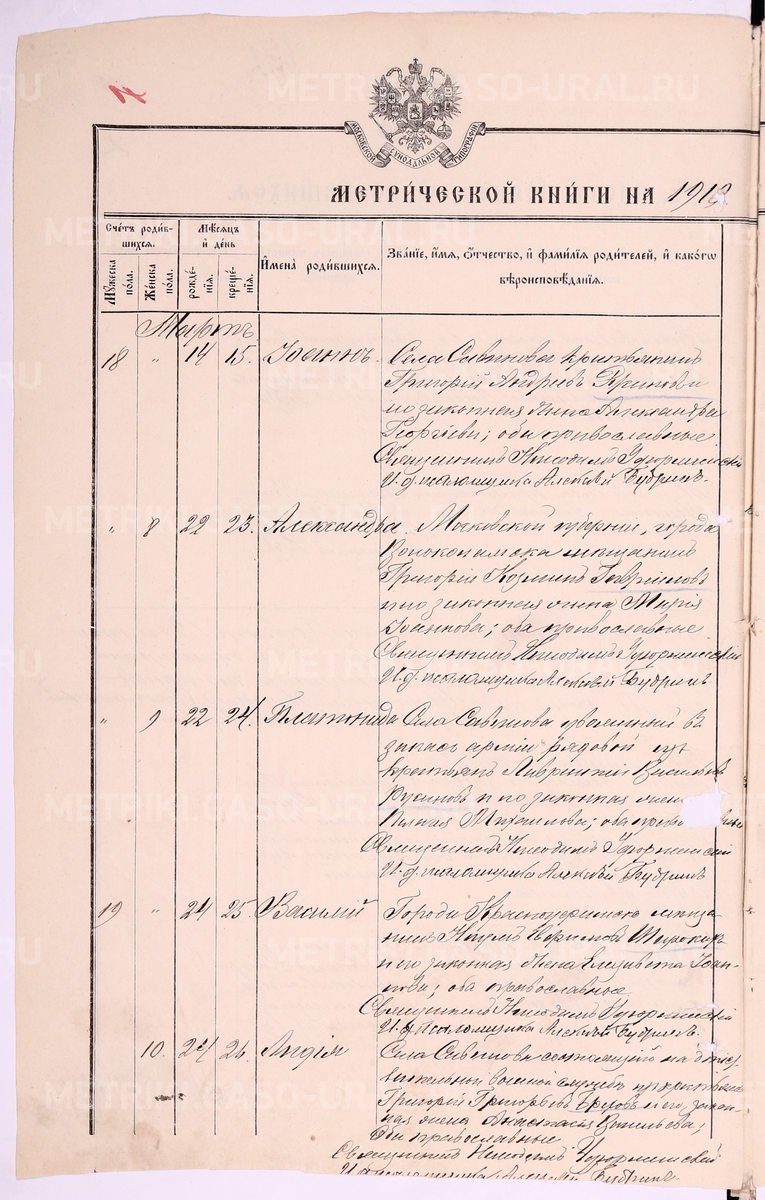 МОСКОВСКОЙ СѴНОДАЛЬНОЙ ТИПОГРАФІИ
МЕТРИ́ЧЕСКОЙ КНИ́ГИ НА 1912
Сче́тъ роди́в-
шихся.
Му́жеска по́ла.
Же́нска по́ла.
Мѣ́сяцъ
и́ де́нь
рожде́-
нїя.
креще́-
нїя.
И҆мена̀ роди́вшихся.
Зва́нїе, и҆́мя, ѻ҆́тчество, и҆ фами́лїя роди́телей, и҆ како́гѡ
вѣроисповѣ́данїя.
Мартъ
18 " 14 15. Іоаннъ. Села Савинова крестьянинъ
Григорій Андреевъ и
его законная жена Александра
Георгіева; оба православные
Священникъ Никодимъ
И. д. псаломщика Алексѣй Бубринъ.
" 8 22 23. Александра. Московской губерніи, города
Волоколамска мѣщанинъ
Григорій Козминъ Гавриловъ
и его законная жена Марія
Іоаннова; оба православные
Священникъ Никодимъ
И. д. псаломщика Алексѣй Бубринъ
" 9 22 24. Платонида Села Савинова уволенный въ
запасъ арміи рядовой изъ
крестьянъ Лаврентій Васильевъ
Русиновъ и его законная жена
Михаилова; оба правосла
Священникъ Никодимъ
И. д. псаломщика Алексѣй Бубринъ
19 " 24 25. Василій Города Красноуфимска мѣща-
нинъ Наумъ Ефримовъ
и его законная жена Елизавета Іоан-
нова; оба православные
Священникъ Никодимъ
И. д. псаломщика Алексѣй Бубринъ.
10. 24 26. Лидія Села Савинова состоящій на дѣйст-
вительной военной службѣ изъ крестьянъ
Григорій Григорьевъ и его закон-
ная жена Анастасія Васильева;
Оба православные
Священникъ Никодимъ
И. д. псаломщика Алексѣй Бубринъ
METRIKI.GASO-URAL.RU